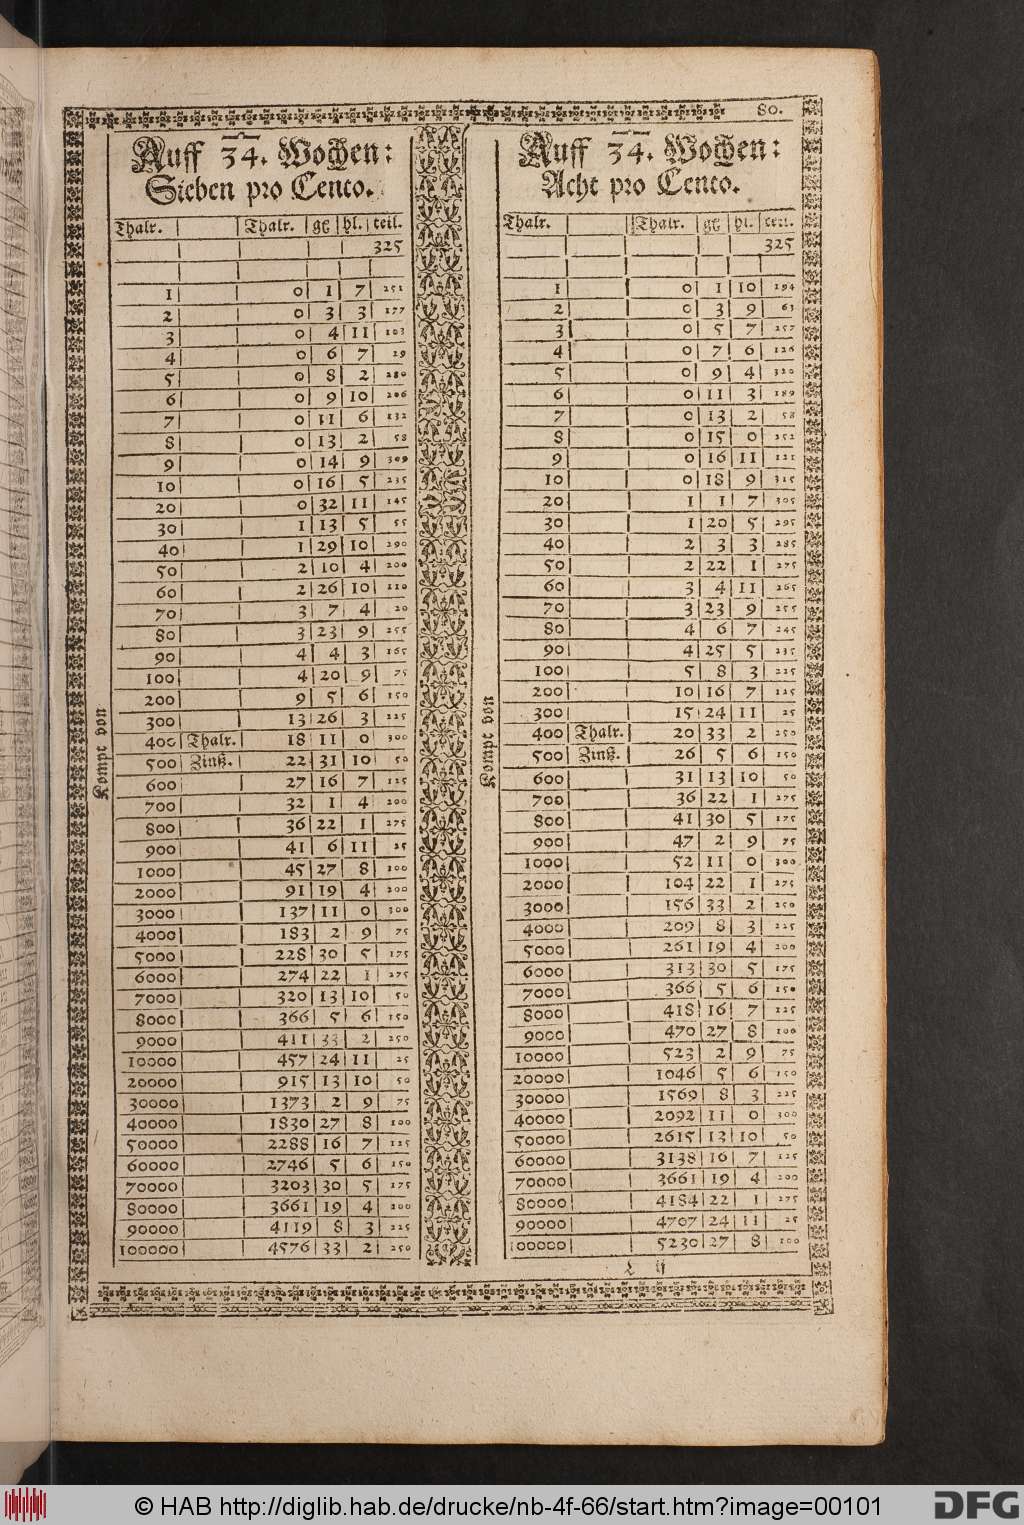 80.
Auff 34. Wochen:
Sieben pro Cento.
Thalr. Thalr. gℓ hl. teil.
325
1 0 1 7 251
2 0 3 3 177
3 0 4 11 103
4 0 6 7 29
5 0 8 2 280
6 0 9 10 206
7 0 11 6 132
8 0 13 2 58
9 0 14 9 309
10 0 16 5 235
20 0 32 11 145
30 1 13 5 55
40 1 29 10 290
50 2 10 4 200
60 2 26 10 110
70 3 7 4 20
80 3 23 9 255
90 4 4 3 165
100 4 20 9 75
200 9 5 6 150
300 13 26 3 225
400 Thalr. 18 11 0 300
500 Zinß. 22 31 10 50
600 27 16 7 125
700 32 1 4 200
800 36 22 1 275
900 41 6 11 25
1000 45 27 8 100
2000 91 19 4 200
3000 137 11 0 300
4000 183 2 9 75
5000 228 30 5 175
6000 274 22 1 275
7000 320 13 10 50
8000 366 5 6 150
9000 411 33 2 250
10000 457 24 11 25
20000 915 13 10 50
30000 1373 2 9 75
40000 1830 27 8 100
50000 2288 16 7 125
60000 2746 5 6 150
70000 3203 30 5 175
80000 3661 19 4 200
90000 4119 8 3 225
100000 4576 33 2 250
Kompt von
Auff 34. Wochen:
Acht pro Cento.
Thalr. Thalr. gℓ hl. teil.
325
1 0 1 10 194
2 0 3 9 63
3 0 5 7 257
4 0 7 6 126
5 0 9 4 320
6 0 11 3 189
7 0 13 2 58
8 0 15 0 252
9 0 16 11 121
10 0 18 9 315
20 1 1 7 305
30 1 20 5 295
40 2 3 3 285
50 2 22 1 275
60 3 4 11 265
70 3 23 9 255
80 4 6 7 245
90 4 25 5 235
100 5 8 3 225
200 10 16 7 125
300 15 24 11 25
400 Thalr. 20 33 2 250
500 Zinß. 26 5 6 150
600 31 13 10 50
700 36 22 1 275
800 41 30 5 175
900 47 2 9 75
1000 52 11 0 300
2000 104 22 1 275
3000 156 33 2 250
4000 209 8 3 225
5000 261 19 4 200
6000 313 30 5 175
7000 366 5 6 150
8000 418 16 7 125
9000 470 27 8 100
10000 523 2 9 75
20000 1046 5 6 150
30000 1569 8 3 225
40000 2092 11 0 300
50000 2615 13 10 50
60000 3138 16 7 125
70000 3661 19 4 200
80000 4184 22 1 275
90000 4707 24 11 25
100000 5230 27 8 100
Kompt von
© HAB http://diglib.hab.de/drucke/nb-4f-66/start.htm?image=00101
DFG